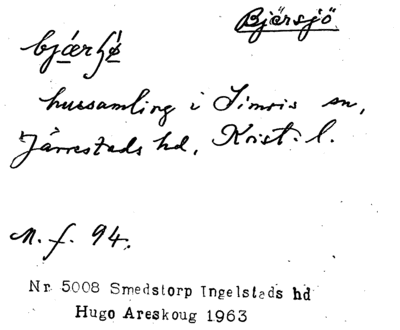 Bjärsjö
bjæ̲rʃø̲
hussamling i Simris sn,
Järrestads hd, Krist. l.
M. f. 94.
Nr 5008 Smedstorp Ingelstads hd
Hugo Areskoug 1963